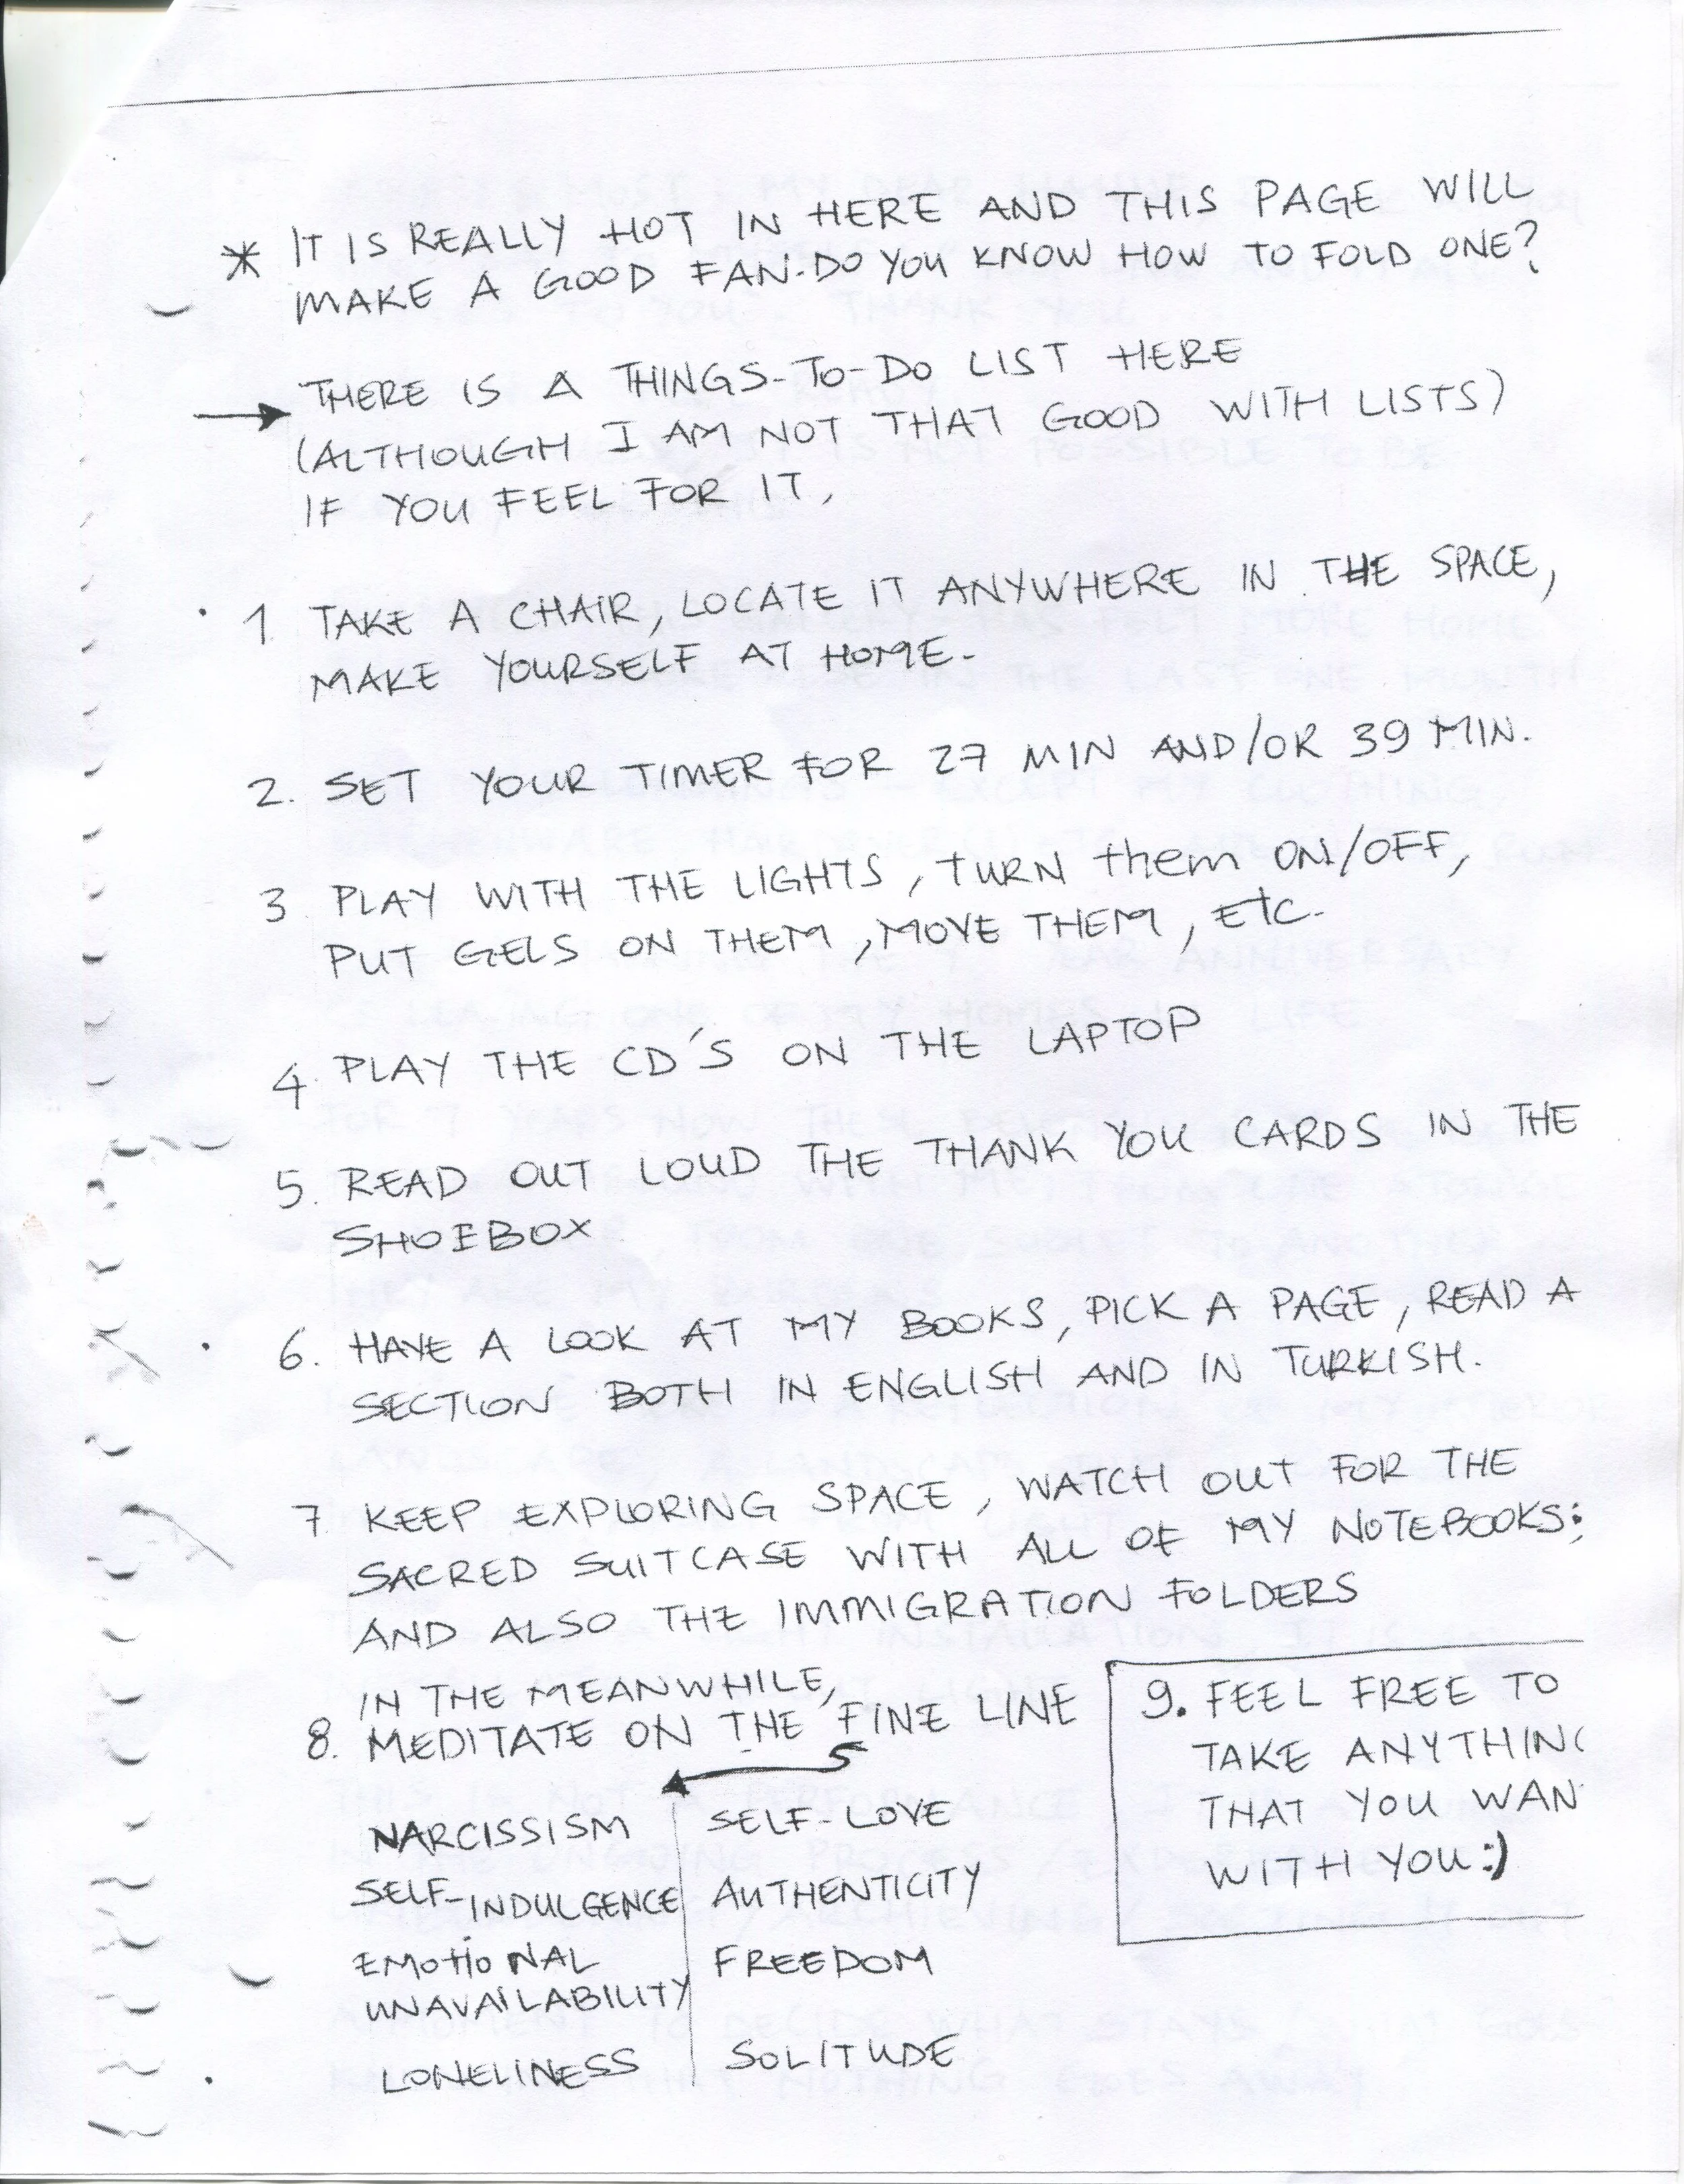 * IT IS REALLY HOT IN HERE AND THIS PAGE WILL
MAKE A GOOD FAN. DO YOU KNOW HOW TO FOLD ONE?
→ THERE IS A THINGS-TO-DO LIST HERE
(ALTHOUGH I AM NOT THAT GOOD WITH LISTS)
IF YOU FEEL FOR IT,
1 TAKE A CHAIR, LOCATE IT ANYWHERE IN THE SPACE,
MAKE YOURSELF AT HOME.
2. SET YOUR TIMER FOR 27 MIN AND/OR 39 MIN.
3 PLAY WITH THE LIGHTS, TURN them ON/OFF,
PUT GELS ON THEM, MOVE THEM, ETC.
4. PLAY THE CD'S ON THE LAPTOP
5. READ OUT LOUD THE THANK YOU CARDS IN THE
SHOEBOX
6. HAVE A LOOK AT MY BOOKS, PICK A PAGE, READ A
SECTION BOTH IN ENGLISH AND IN TURKISH.
7 KEEP EXPLORING SPACE, WATCH OUT FOR THE
SACRED SUITCASE WITH ALL OF MY NOTEBOOKS;
AND ALSO THE IMMIGRATION FOLDERS
IN THE MEANWHILE,
8. MEDITATE ON THE FINE LINE
NARCISSISM SELF-LOVE
SELF-INDULGENCE AUTHENTICITY
EMOTIONAL FREEDOM
UNAVAILABILITY
LONELINESS SOLITUDE
9. FEEL FREE TO
TAKE ANYTHING
THAT YOU WAN
WITH YOU:)